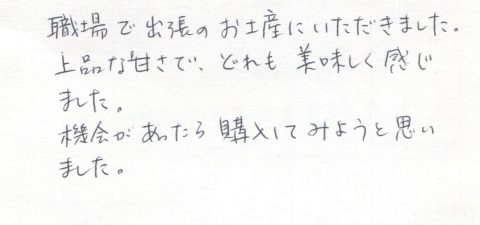 職場で出張のお土産にいただきました。
上品な甘さで、どれも美味しく感じ
ました。
機会があったら購入してみようと思い
ました。